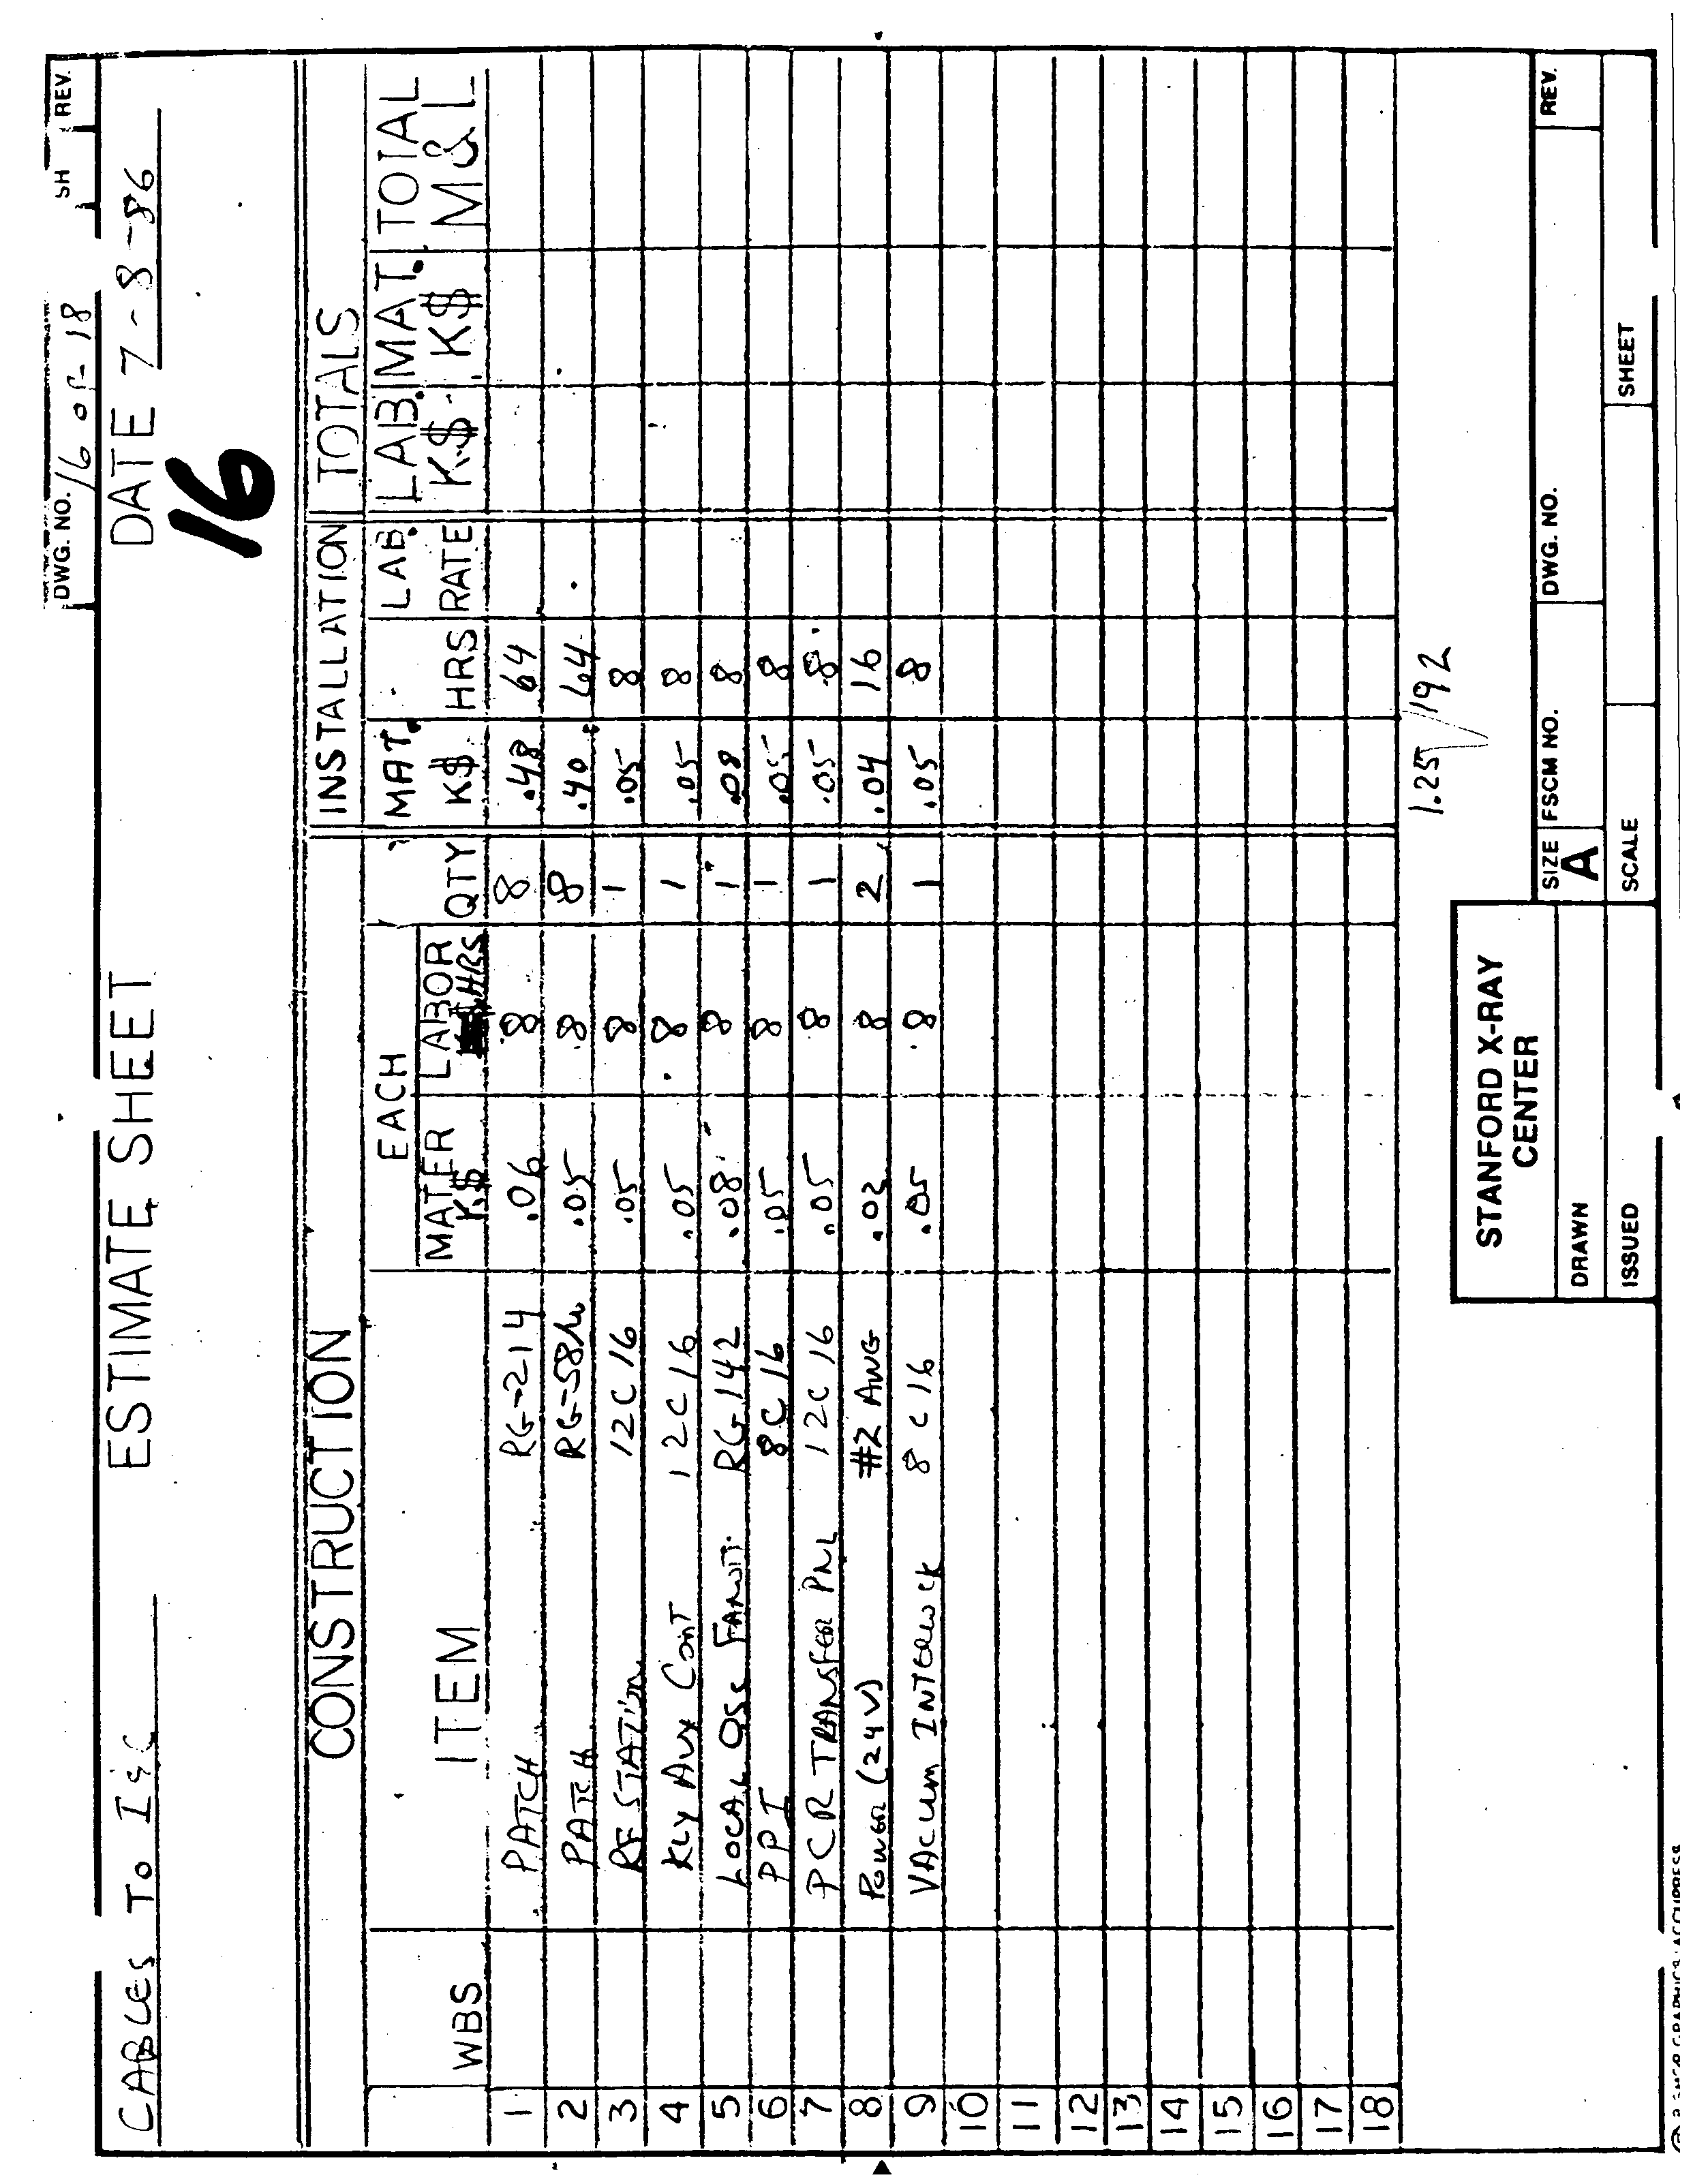 DWG. NO. 16 OF 18 SH REV.
CABLES TO I&C ESTIMATE SHEET DATE 7-8-86
16
CONSTRUCTION INSTALLATION TOTALS
EACH MAT. LAB. LAB. MAT. TOTAL
WBS ITEM MATER K$ LABOR HRS QTY K$ HRS RATE K$ K$ M&L
1 PATCH RG-214 .06 8 8 .48 64
2 PATCH RG-58/u .05 8 8 .40 64
3 RF STATION 12C16 .05 8 1 .05 8
4 KLY AUX CONT 12C16 .05 8 1 .05 8
5 LOCAL OSC FANOUT RG142 .08 8 1 .08 8
6 PPI 8C16 .05 8 1 .05 8
7 PCR TRANSFER PNL 12C16 .05 8 1 .05 8
8 POWER (24V) #2 AWG .02 8 2 .04 16
9 VACUUM INTERLOCK 8C16 .05 8 1 .05 8
10
11
12
13
14
15
16
17
18
1.25/192
STANFORD X-RAY
CENTER
SIZE A FSCM NO. DWG. NO. REV.
DRAWN
ISSUED SCALE SHEET